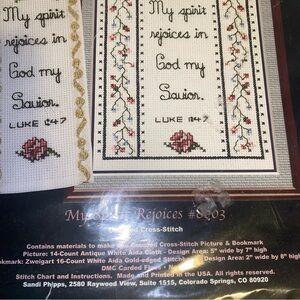 My spirit
rejoices in
God my
Savior.
LUKE 1:47
My spirit
rejoices in
God my
Savior.
LUKE 1:47
My Spirit Rejoices
Cross-Stitch
Contains materials to make Counted Cross-Stitch Picture & Bookmark
Picture: 14-Count Antique White Aida Cloth - Design Area: 5" wide by 7" high
Zweigart 16-Count White Aida Gold-edged - Design Area: 2" wide by 8" high
DMC Carded Floss
Stitch Chart and Instructions. Made and Printed in the USA. All rights reserved.
Sandi Phipps, 2580 Raywood View, Suite 1515, Colorado Springs, CO 80920